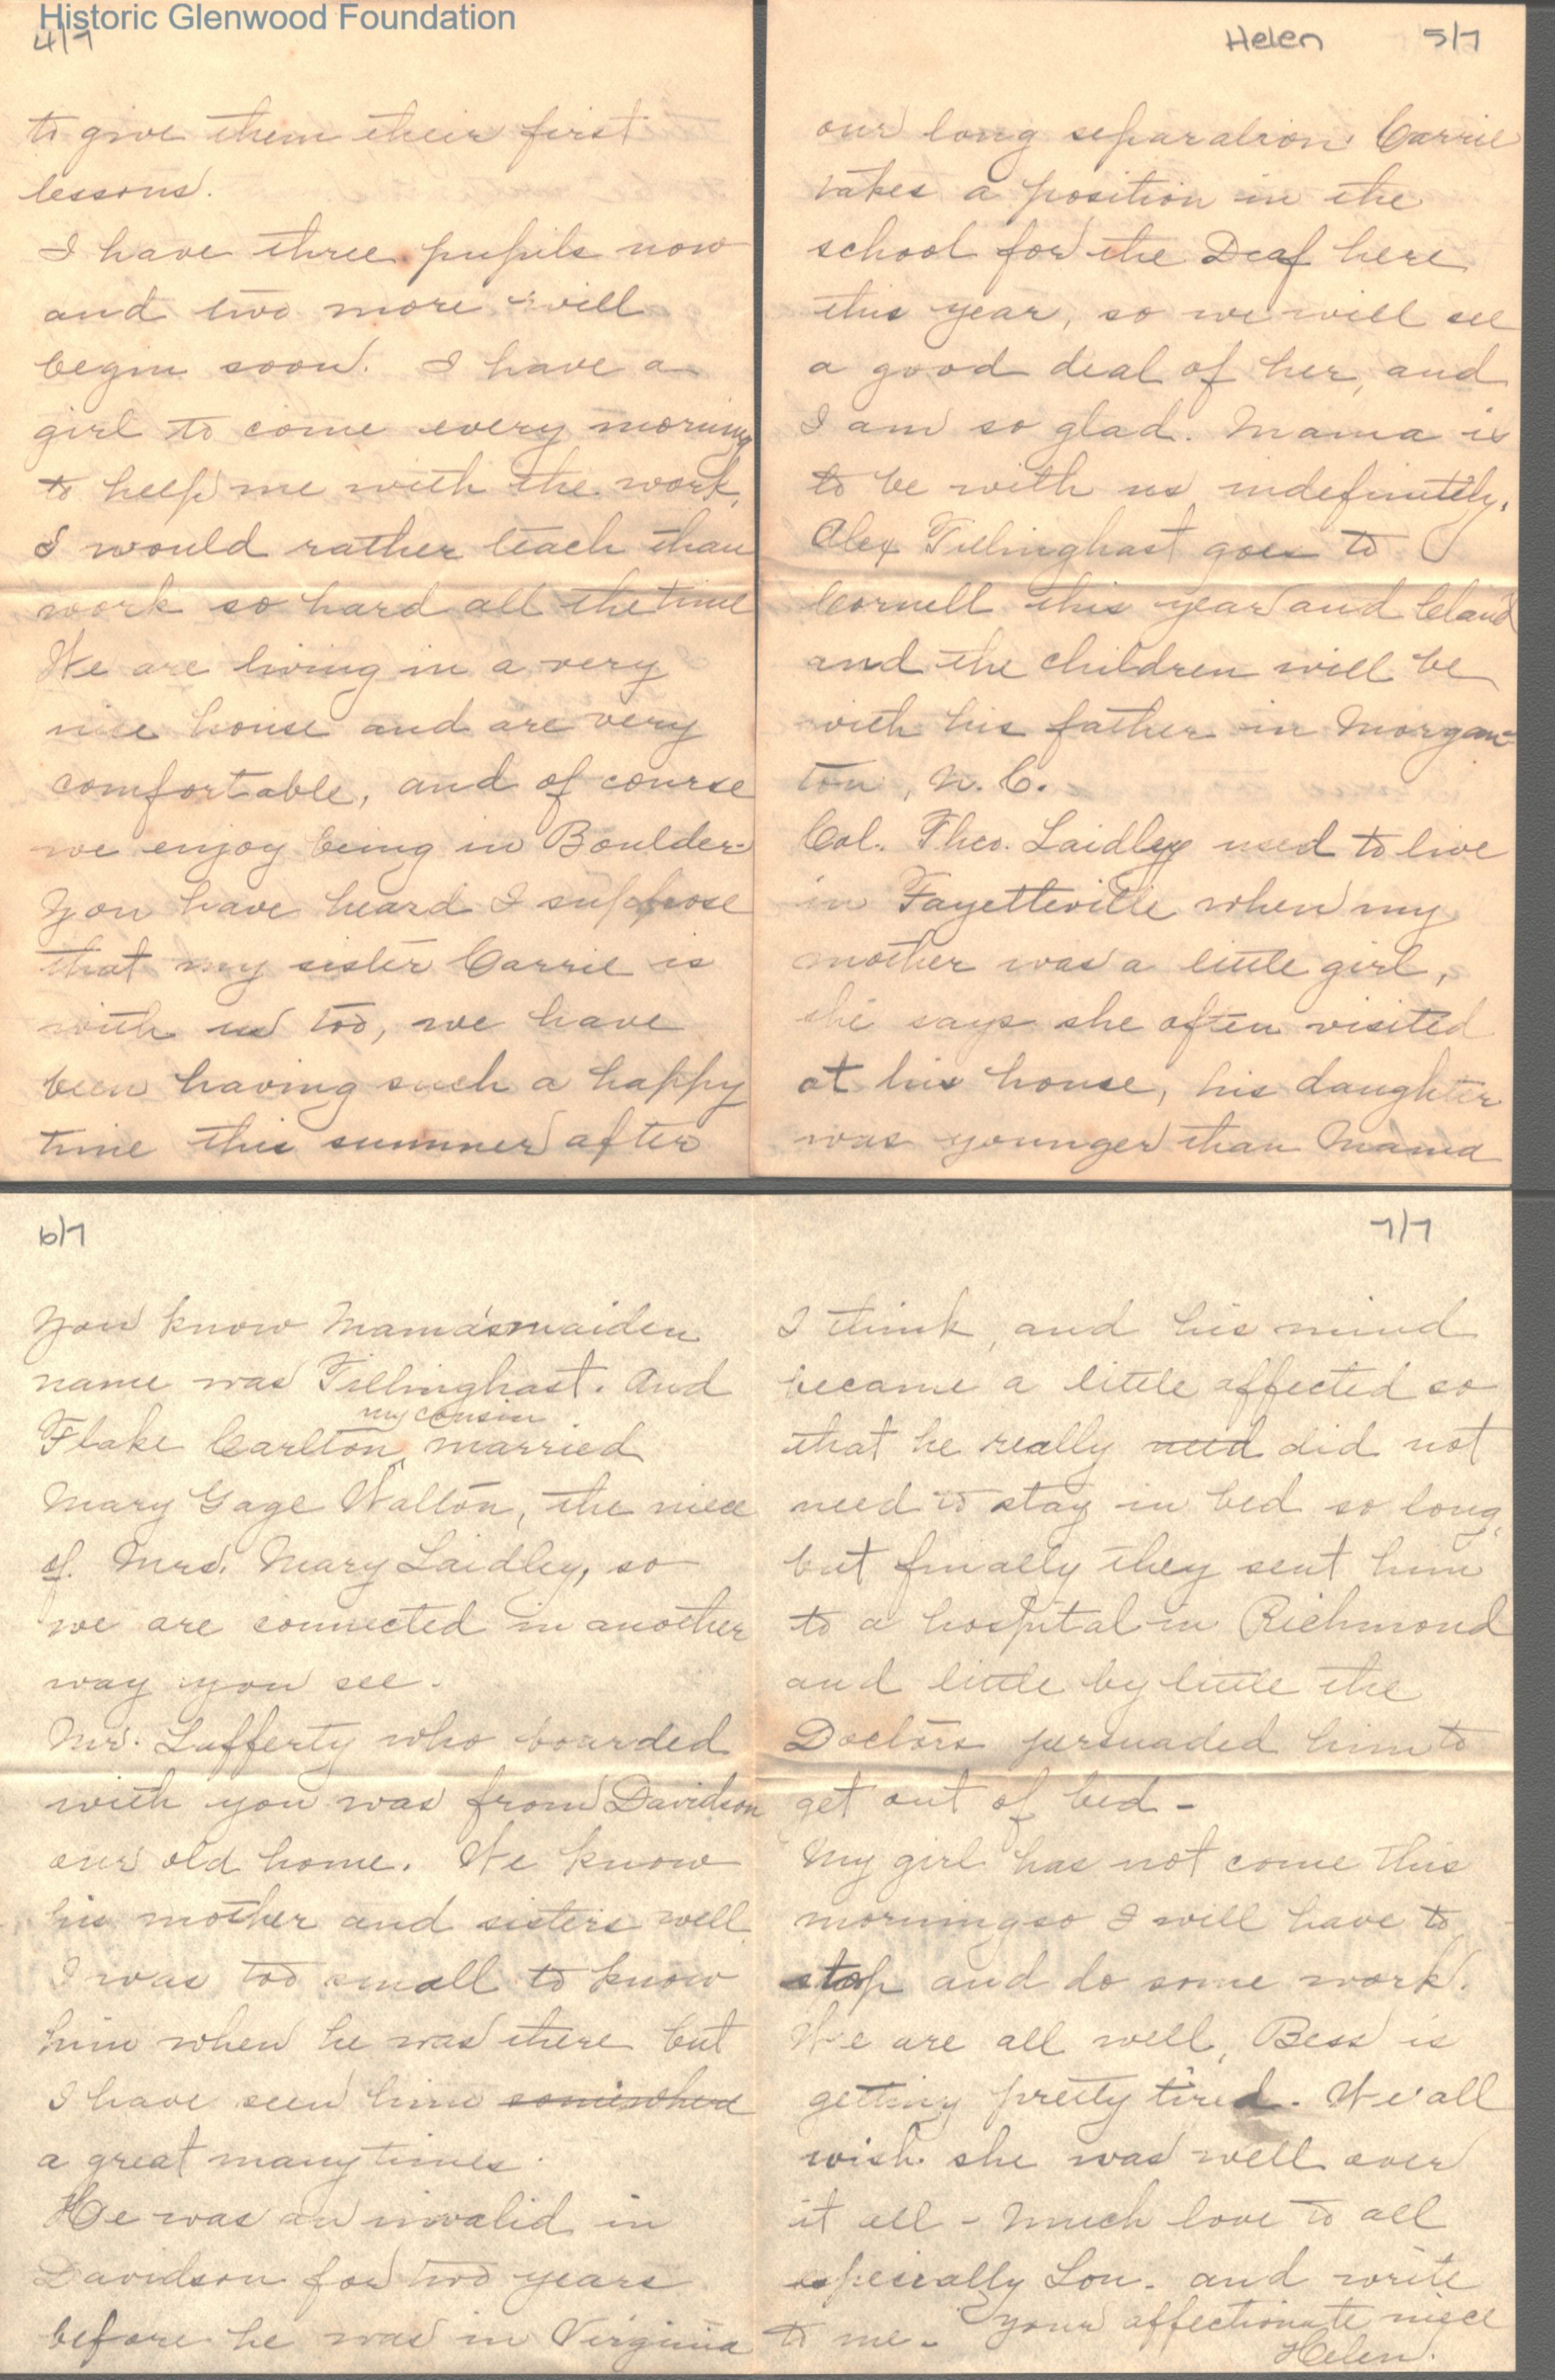 Historic Glenwood Foundation
4/7
to give them their first
lessons.
I have three pupils now
and two more will
begin soon. I have a
girl to come every morning
to help me with the work,
I would rather teach than
work so hard all the time
We are living in a very
nice house and are very
comfortable, and of course
we enjoy being in Boulder.
You have heard I suppose
that my sister Carrie is
with us too, we have
been having such a happy
time this summer after
Helen 5/7
our long separation. Carrie
takes a position in the
school for the Deaf here
this year, so we will see
a good deal of her, and
I am so glad. Mama is
to be with us indefinitely.
Alex Tillinghast goes to
Cornell this year and Claud
and the children will be
with his father in Morgan-
ton, N.C.
Col. Theo. Laidley used to live
in Fayetteville when my
mother was a little girl,
she says she often visited
at his house, his daughter
was younger than Mama
6/7
You know Mama's maiden
name was Tillinghast. And
my cousin
Flake Carlton married
Mary Gage Walton, the niece
of Mrs. Mary Laidley, so
we are connected in another
way you see.
Mr. Lafferty who boarded
with you was from Davidson
our old home. We know
his mother and sisters well
I was too small to know
him when he was there but
I have seen him somewhere
a great many times.
He was an invalid in
Davidson for two years
before he was in Virginia
7/7
I think, and his mind
became a little affected so
that he really need did not
need to stay in bed so long,
but finally they sent him
to a hospital in Richmond
and little by little the
Doctors persuaded him to
get out of bed -
My girl has not come this
morning so I will have to
stop and do some work.
We are all well, Bess is
getting pretty tired. We all
wish she was well over
it all - Much love to all
especially Lou. and write
to me - Your affectionate niece
Helen.